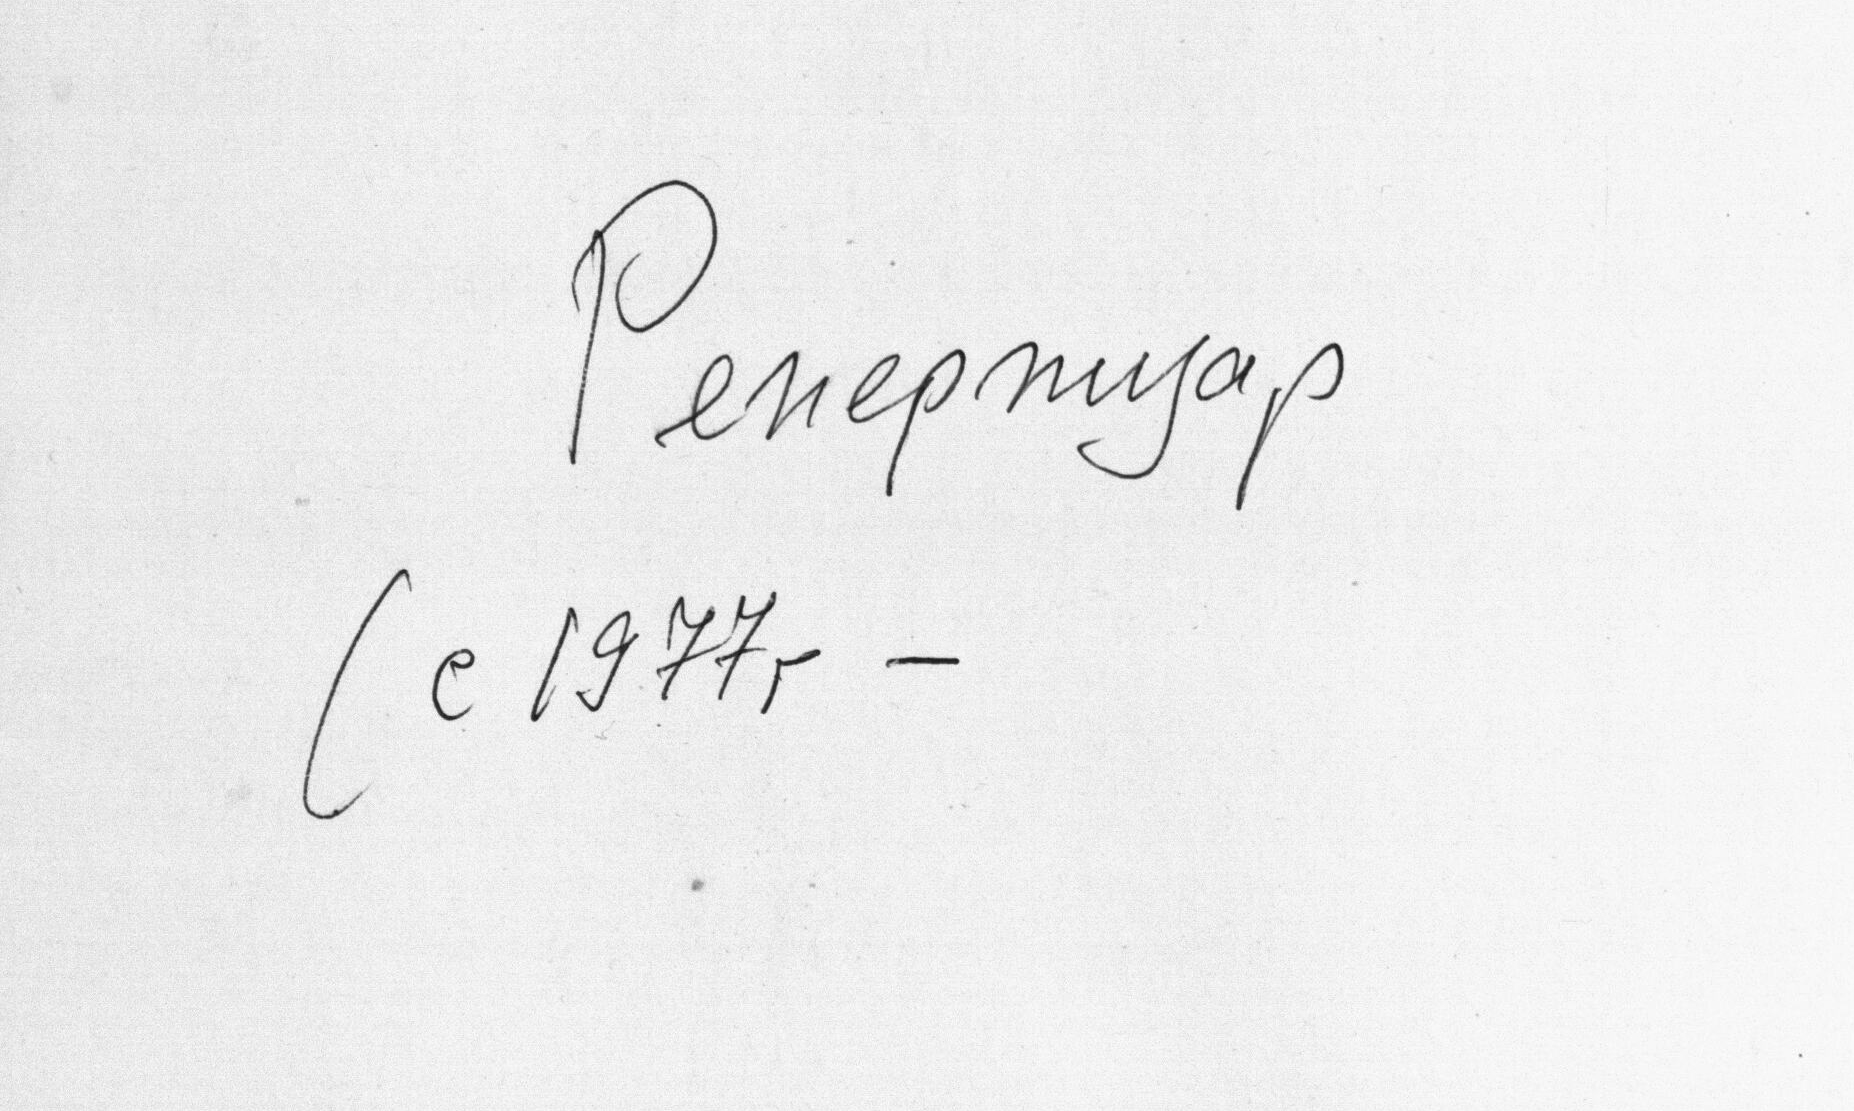 Репертуар
(с 1977г —